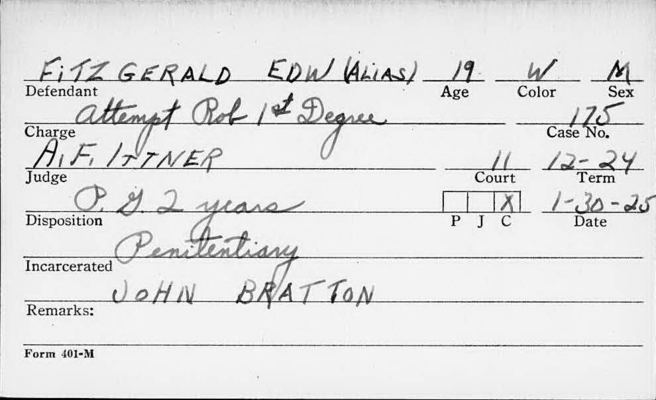 FITZGERALD EDW (ALIAS) 19 W M
Defendant Age Color Sex
Attempt Rob 1st Degree 175
Charge Case No.
A. F. ITTNER 11 12-24
Judge Court Term
P. G. 2 years X 1-30-25
Disposition P J C Date
Penitentiary
Incarcerated
JOHN BRATTON
Remarks:
Form 401-M